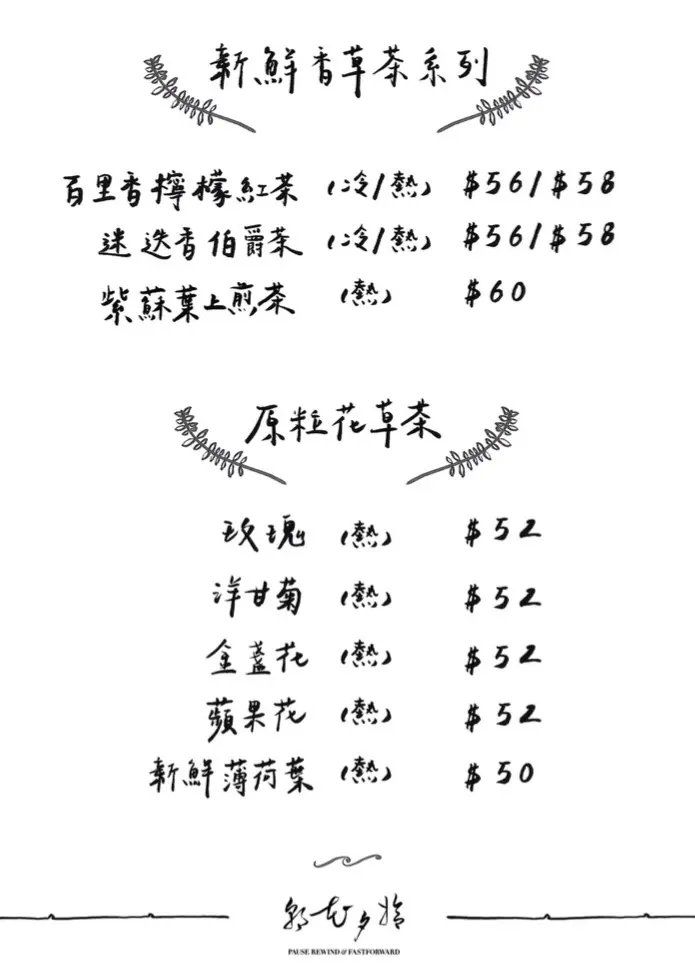 新鮮香草茶系列
百里香檸檬紅茶 (冷/熱) $56/$58
迷迭香伯爵茶 (冷/熱) $56/$58
紫蘇葉上煎茶 (熱) $60
原粒花草茶
玫瑰 (熱) $52
洋甘菊 (熱) $52
金盞花 (熱) $52
蘋果花 (熱) $52
新鮮薄荷葉 (熱) $50
朝花夕拾
PAUSE REWIND & FASTFORWARD